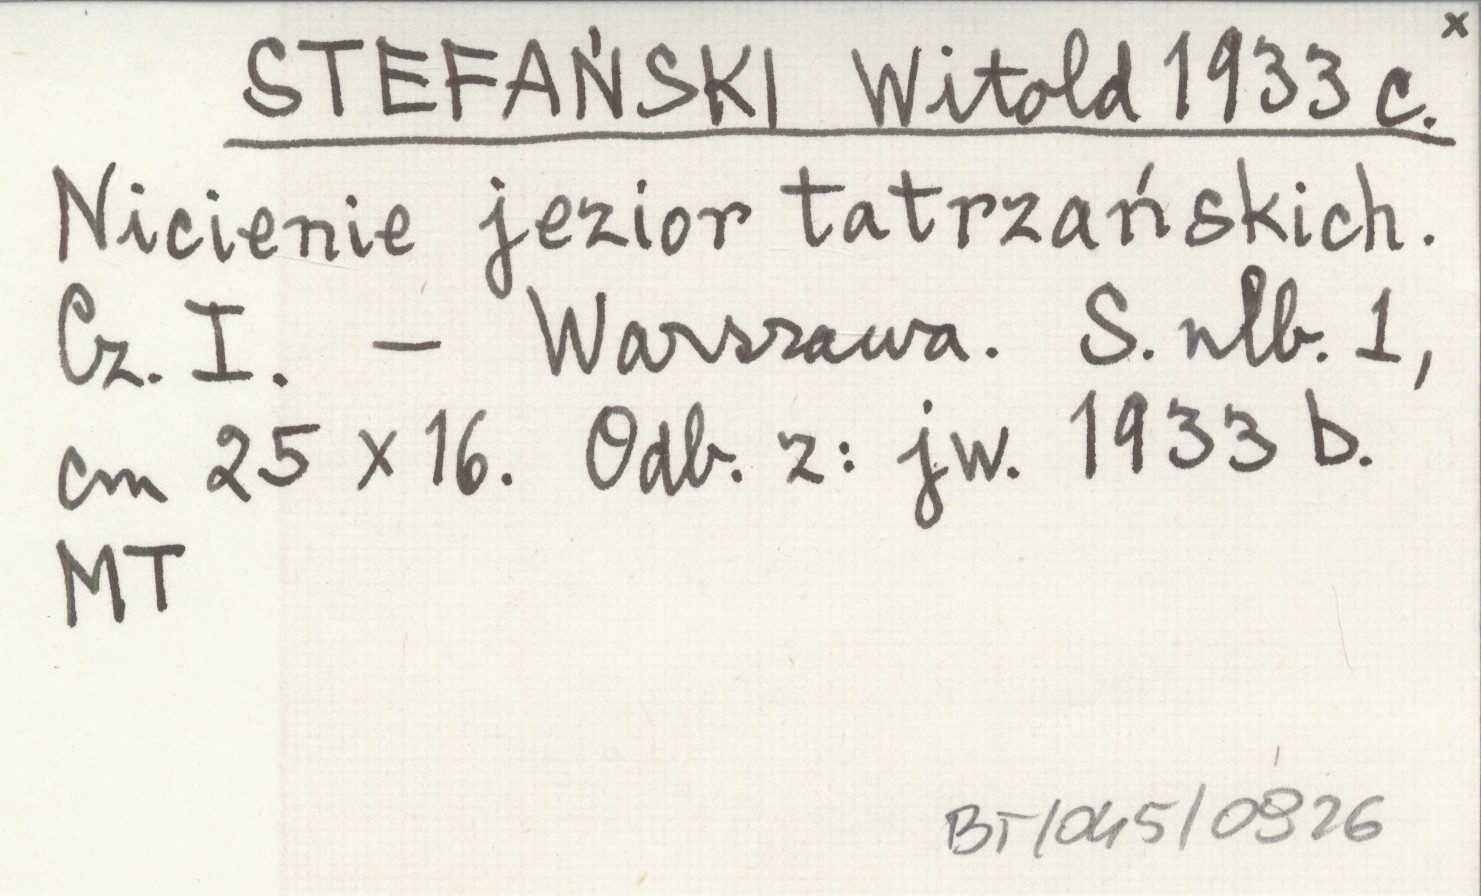 x
STEFAŃSKI Witold 1933 c.
Nicienie jezior tatrzańskich.
Cz. I. – Warszawa. S. nlb. 1,
cm 25 x 16. Odb. z: jw. 1933 b.
MT
BT/045/0926